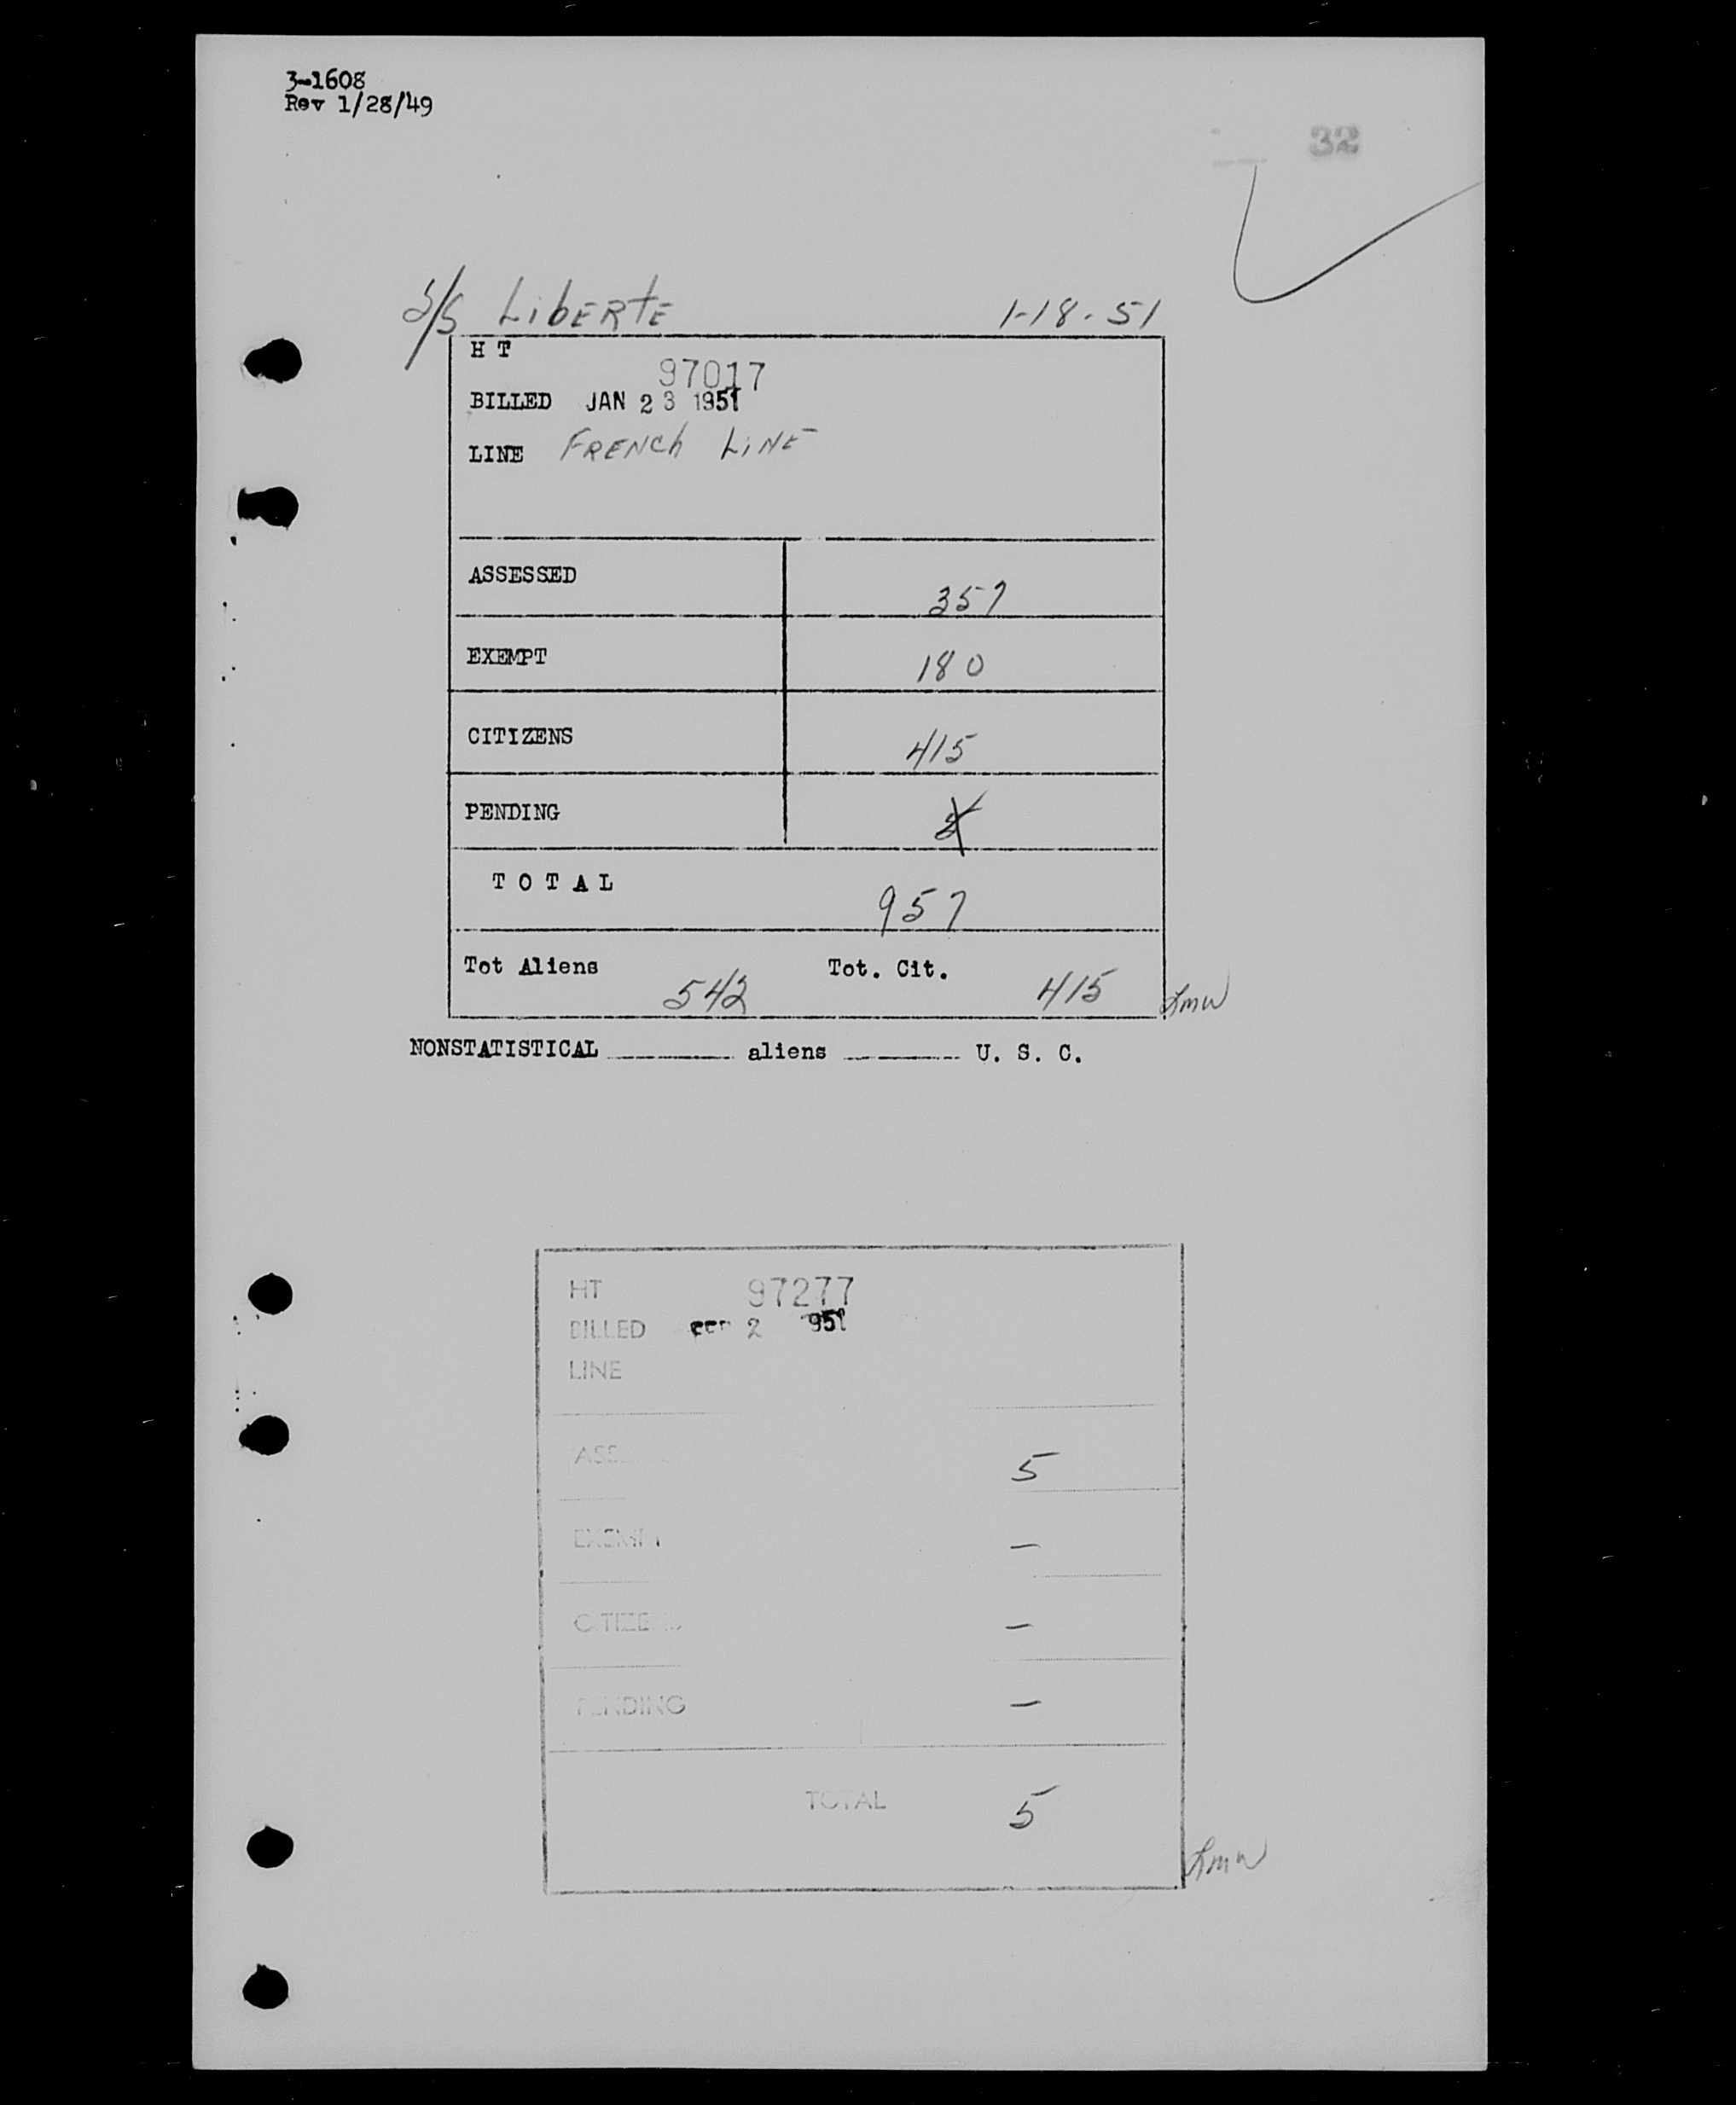 3-1608
Rev 1/28/49
32
S/S LibERTE 1-18-51
H T
97017
BILLED JAN 23 1951
LINE FRENCh LiNE
ASSESSED 357
EXEMPT 180
CITIZENS 415
PENDING 5
TOTAL 957
Tot Aliens 542 Tot. Cit. 415 Lmw
NONSTATISTICAL aliens U. S. C.
HT 97277
BILLED 2 951
LINE
ASSE 5
EXEMPT —
CITIZE —
PENDING —
TOTAL 5
Lmw